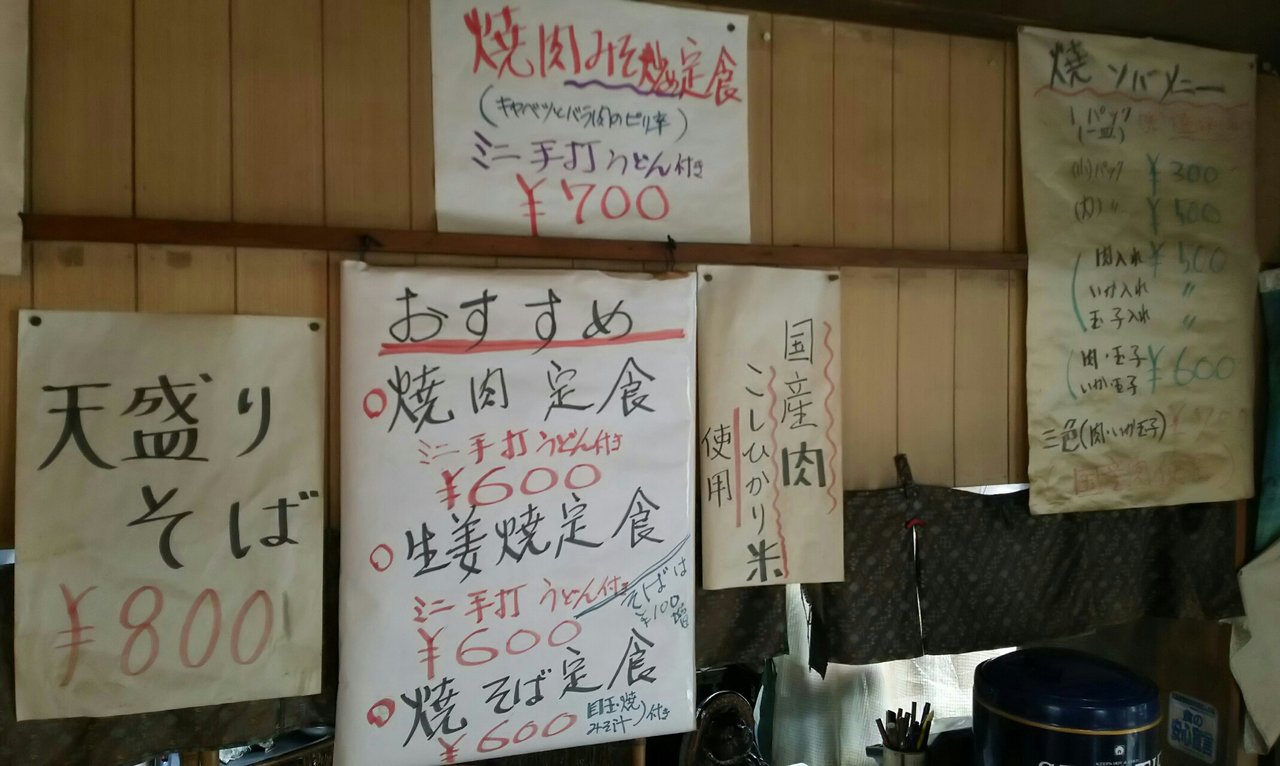 焼肉みそ炒め定食
(キャベツとバラ肉のピリ辛)
ミニ手打うどん付き
¥700
天盛り
そば
¥800
おすすめ
焼肉定食
ミニ手打うどん付き
¥600
生姜焼定食
ミニ手打うどん付き
¥600
そばは
¥100増
焼そば定食
¥600
目玉焼
みそ汁
付き
国産肉
こしひかり米
使用
焼ソバメニー
1パック
(一皿)
(小)パック ¥300
(大) 〃 ¥500
肉入れ ¥500
いか入れ 〃
玉子入れ 〃
肉・玉子
いか玉子
¥600
三色(肉・いか玉子)
食の
安心宣言